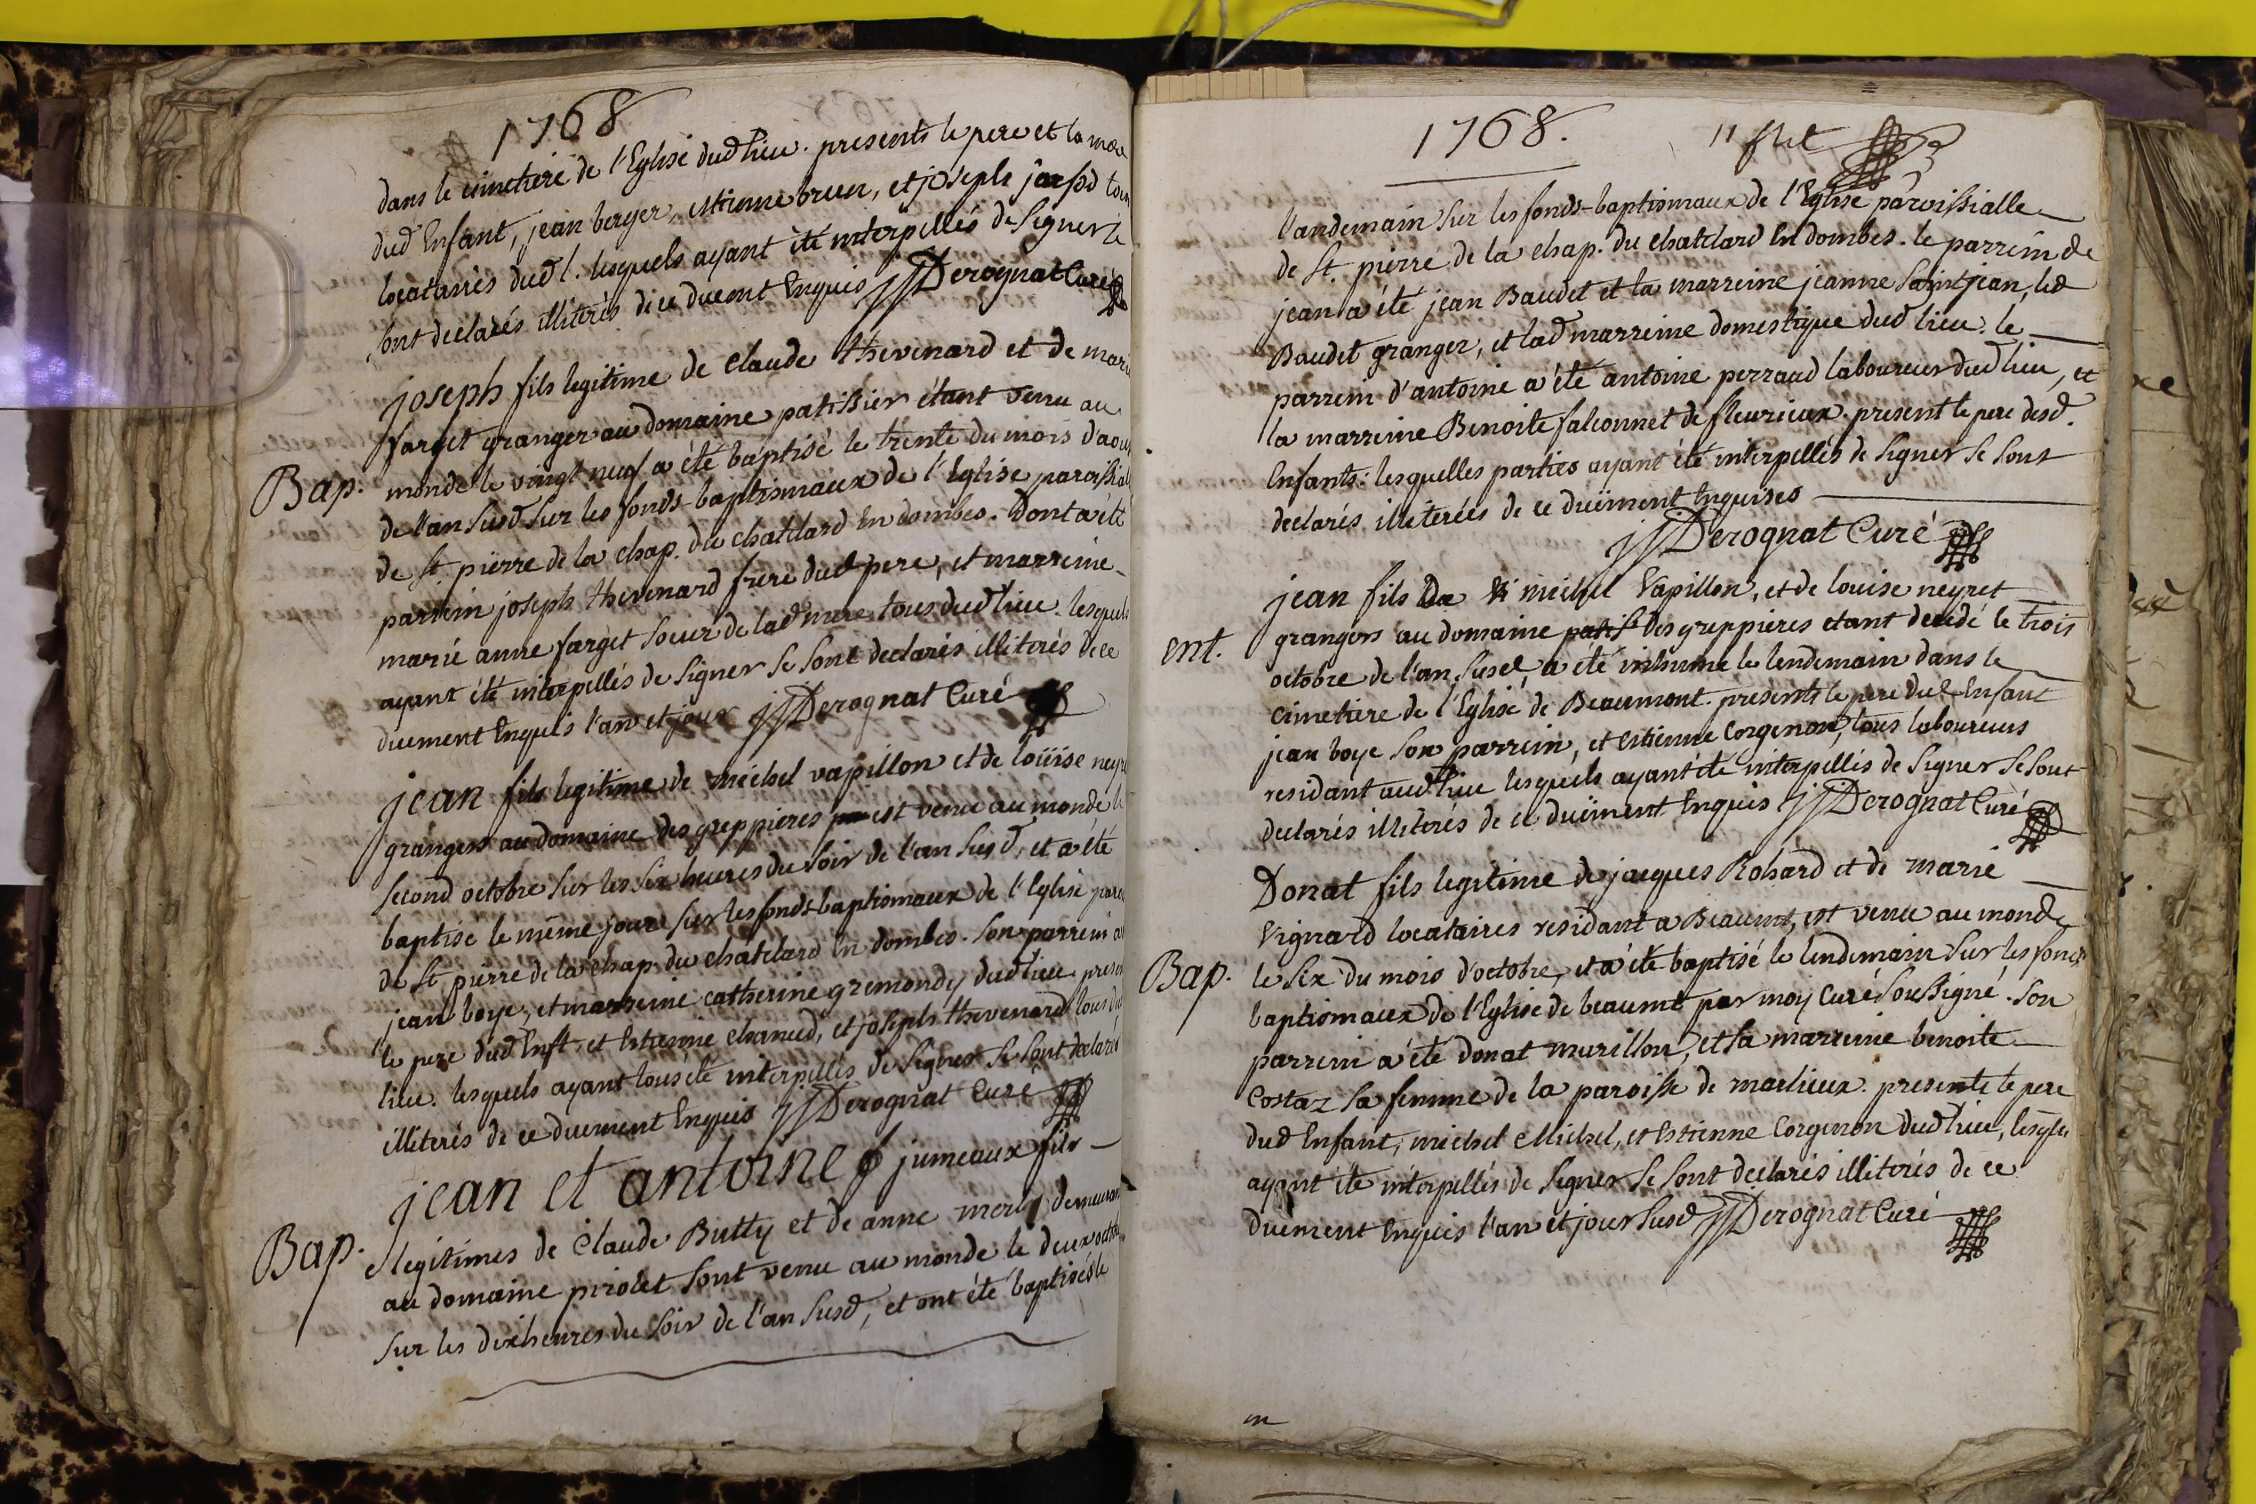 1768
dans le cimetiere de l'Eglise dud lieu. presents le pere et la mere
dud Enfant, jean berger, estienne brun, et joseph tous
locataires dud l. lesquels ayant été interpellés de signer se
sont declarés illiterés de ce duement Enquis JJDerognat Curé
joseph fils legitime de claude thevenard et de marie
farget granger au domaine patissier étant venu au
Bap. monde le vingt neuf a été baptisé le trente du mois d'aoust
de l'an susd sur les fonds baptismaux de l'Eglise paroissialle
de st pierre de la chap. du chatelard En dombes. Dont a été
parrein joseph thevenard frere dud pere, et marreine
marie anne farget soeur de lad mere tous dud lieu. lesquels
ayant été interpellés de signer se sont declarés illiterés de ce
duement Enquis l'an et jour JJDerognat Curé
jean fils legitime de michel vapillon et de loüise neyret
grangers au domaine des greppieres est venu au monde le
second octobre sur les six heures du soir de l'an susd, et a été
baptisé le même jour sur les fonds baptismaux de l'Eglise paro
de st pierre de la chap. du chatelard En dombes. son parrein a
jean boye, et marreine catherine gremondy dud lieu. presents
le pere dud Enft, et Estienne chanud, et joseph thevenard tous dud
lieu. lesquels ayant tous été interpellés de signer se sont declarés
illiterés de ce duement Enquis JJDerognat Curé
jean et antoine jumeaux fils
Bap. legitimes de claude Butty et de anne merly demeurant
au domaine pirolet sont venu au monde le deux octobre
sur les dix heures du soir de l'an susd, et ont été baptisés le
1768. 11
landemain sur les fonds-baptismaux de l'Eglise paroissialle
de st pierre de la chap. du chatelard En dombes. le parrein de
jean a été jean Baudet et la marreine jeanne saintjean, led
Baudet granger, et lad marreine domestique dud lieu. le
parrein d'antoine a été antoine perraud laboureur dud lieu, et
la marreine Benoite falconnet de fleurieux. present le pere desd.
Enfants: lesquelles parties ayant été interpellés de signer se sont
declarés illiterées de ce duëment Enquises
JJDerognat Curé
jean fils De michel Vapillon, et de louise neyret
ent. grangers au domaine des greppieres etant decedé le trois
octobre de l'an susd, a été inhumé le lendemain dans le
cimetiere de l'Eglise de Beaumont. presents le pere dud Enfant
jean boye son parrein, et estienne Corgenon, tous laboureurs
residant aud lieu lesquels ayant été interpellés de signer se sont
declarés illiterés de ce duëment Enquis JJDerognat Curé
Donat fils legitime de jacques Rohard et de marie
Vignard locataires residant a Beaumt, est venu au monde
Bap. le six du mois d'octobre, et a été baptisé le lendemain sur les fonds
baptismaux de l'Eglise de beaumt par moy Curé soussigné. son
parrein a été donat murillon, et sa marreine benoite
Costaz sa femme de la paroisse de marlieux. presents le pere
dud Enfant, michel Michel, et Estienne Corgenon dud lieu, lesqls
ayant été interpellés de signer se sont declarés illiterés de ce
duëment Enquis l'an et jour susd JJDerognat Curé